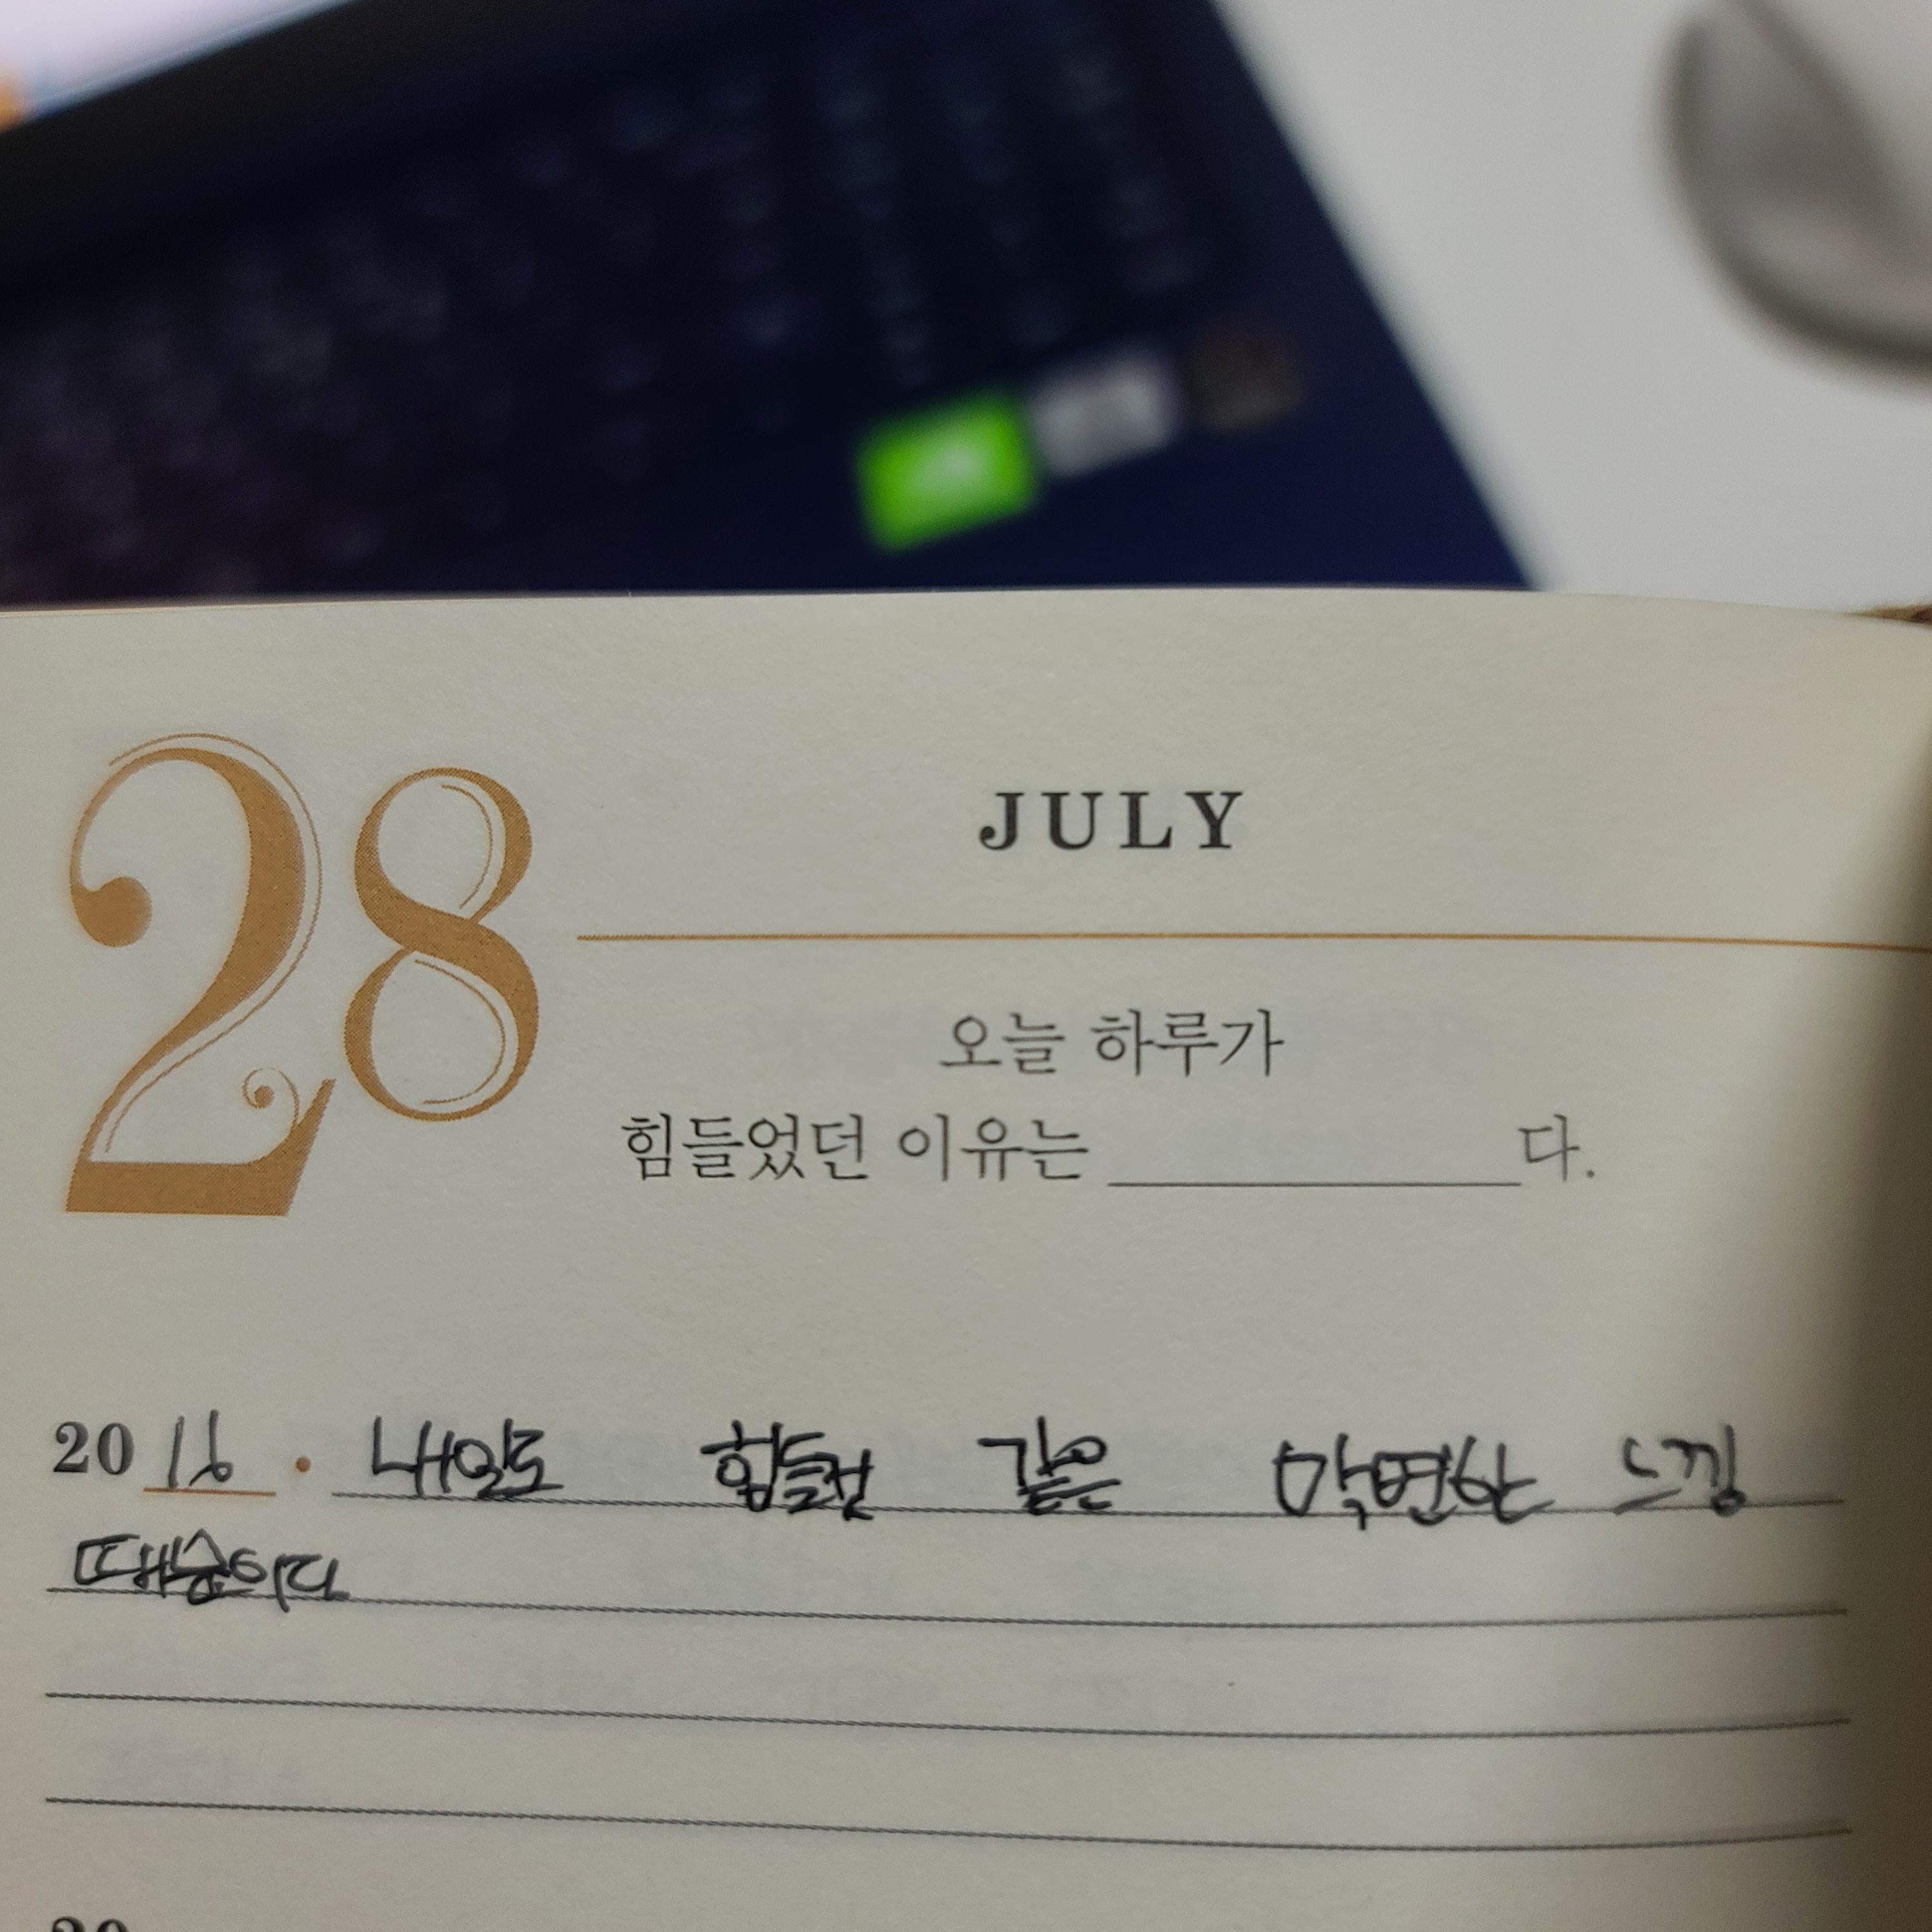 28
JULY
오늘 하루가
힘들었던 이유는 ________다.
2016 · 내일도 힘들것 같은 막연한 느낌
때문이다
20